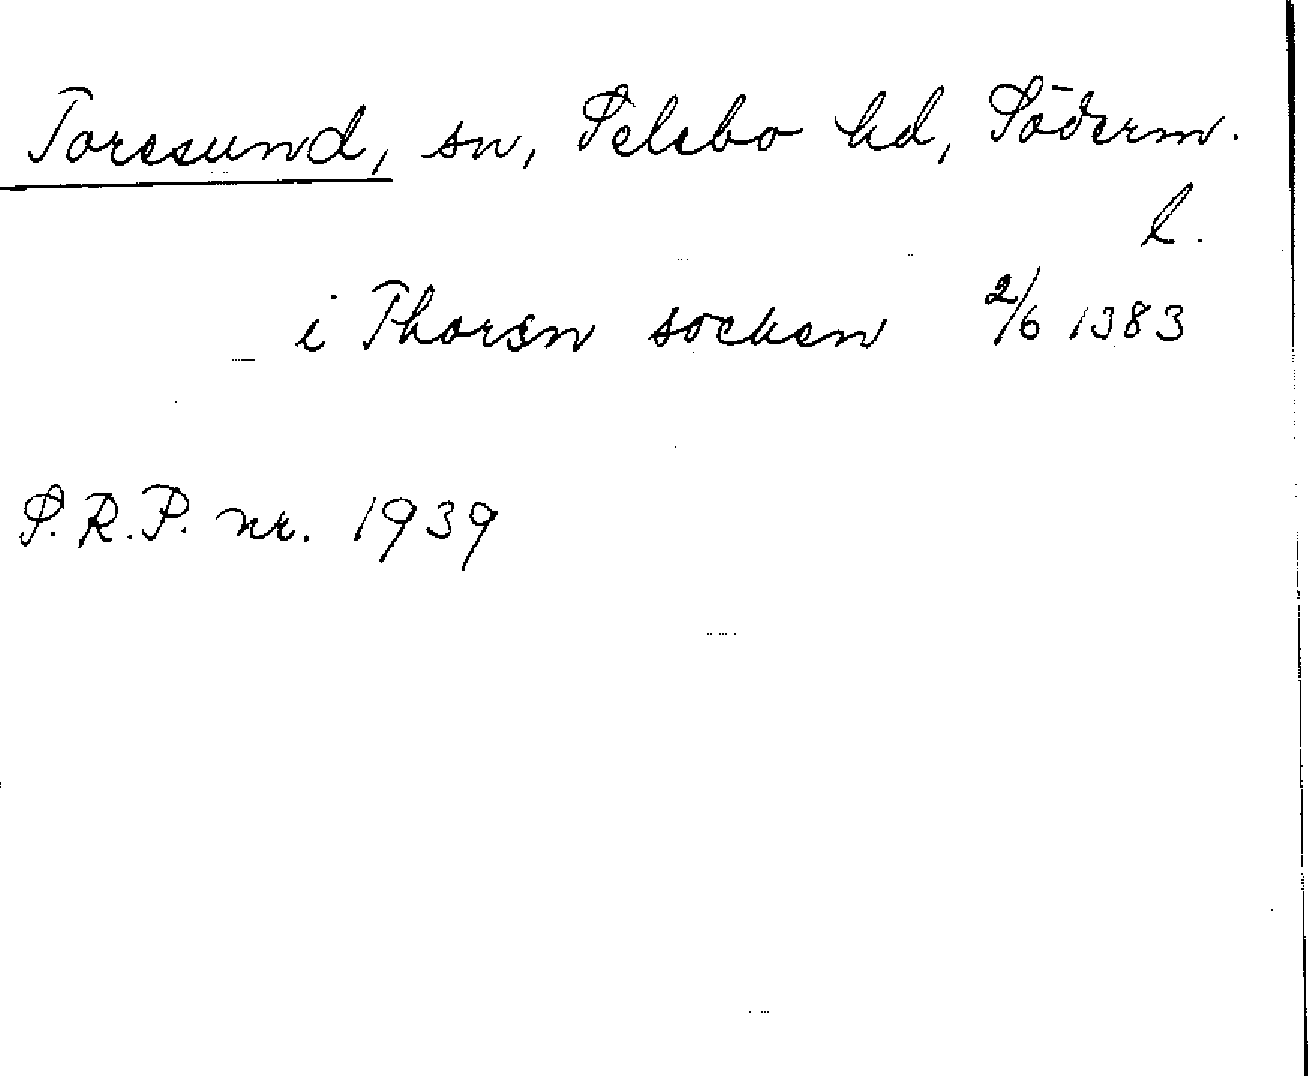 Toresund, sn, Selebo hd, Söderm.
l.
i Thoræn socken 2/6 1383
S.R.P. nr. 1939